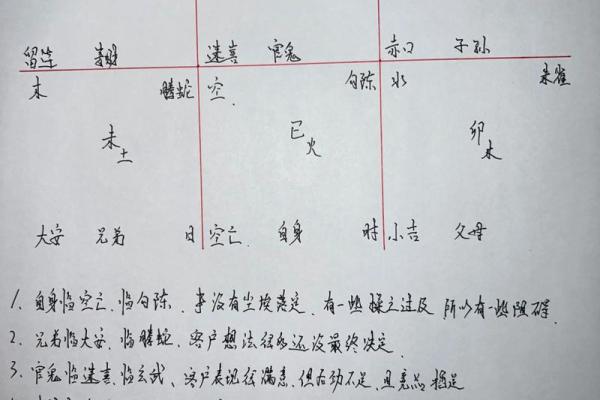 留连 妻财 速喜 官鬼 赤口 子孙
木 腾蛇 空. 勾陈 水 朱雀
未土 巳火 卯木
大安 兄弟 日 空亡. 自身 时 小吉 父母
1. 自身临空亡.临勾陈.事没有尘埃落定.有一些 所以有一些阻碍.
2. 兄弟临大安.临腾蛇.客户想法很多还没最终决定.
3. 官鬼临速喜.临玄武、客户表现很满意.但右动不足.且竞品 足